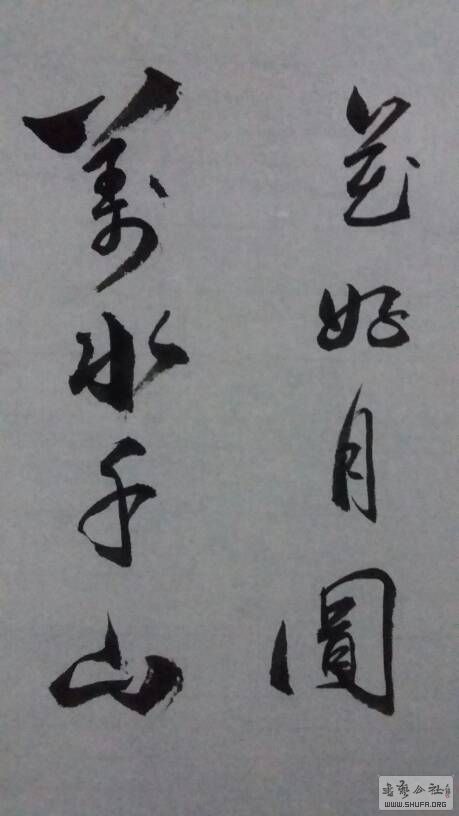 花好月圓
萬水千山
書藝公社
WWW.SHUFA.ORG